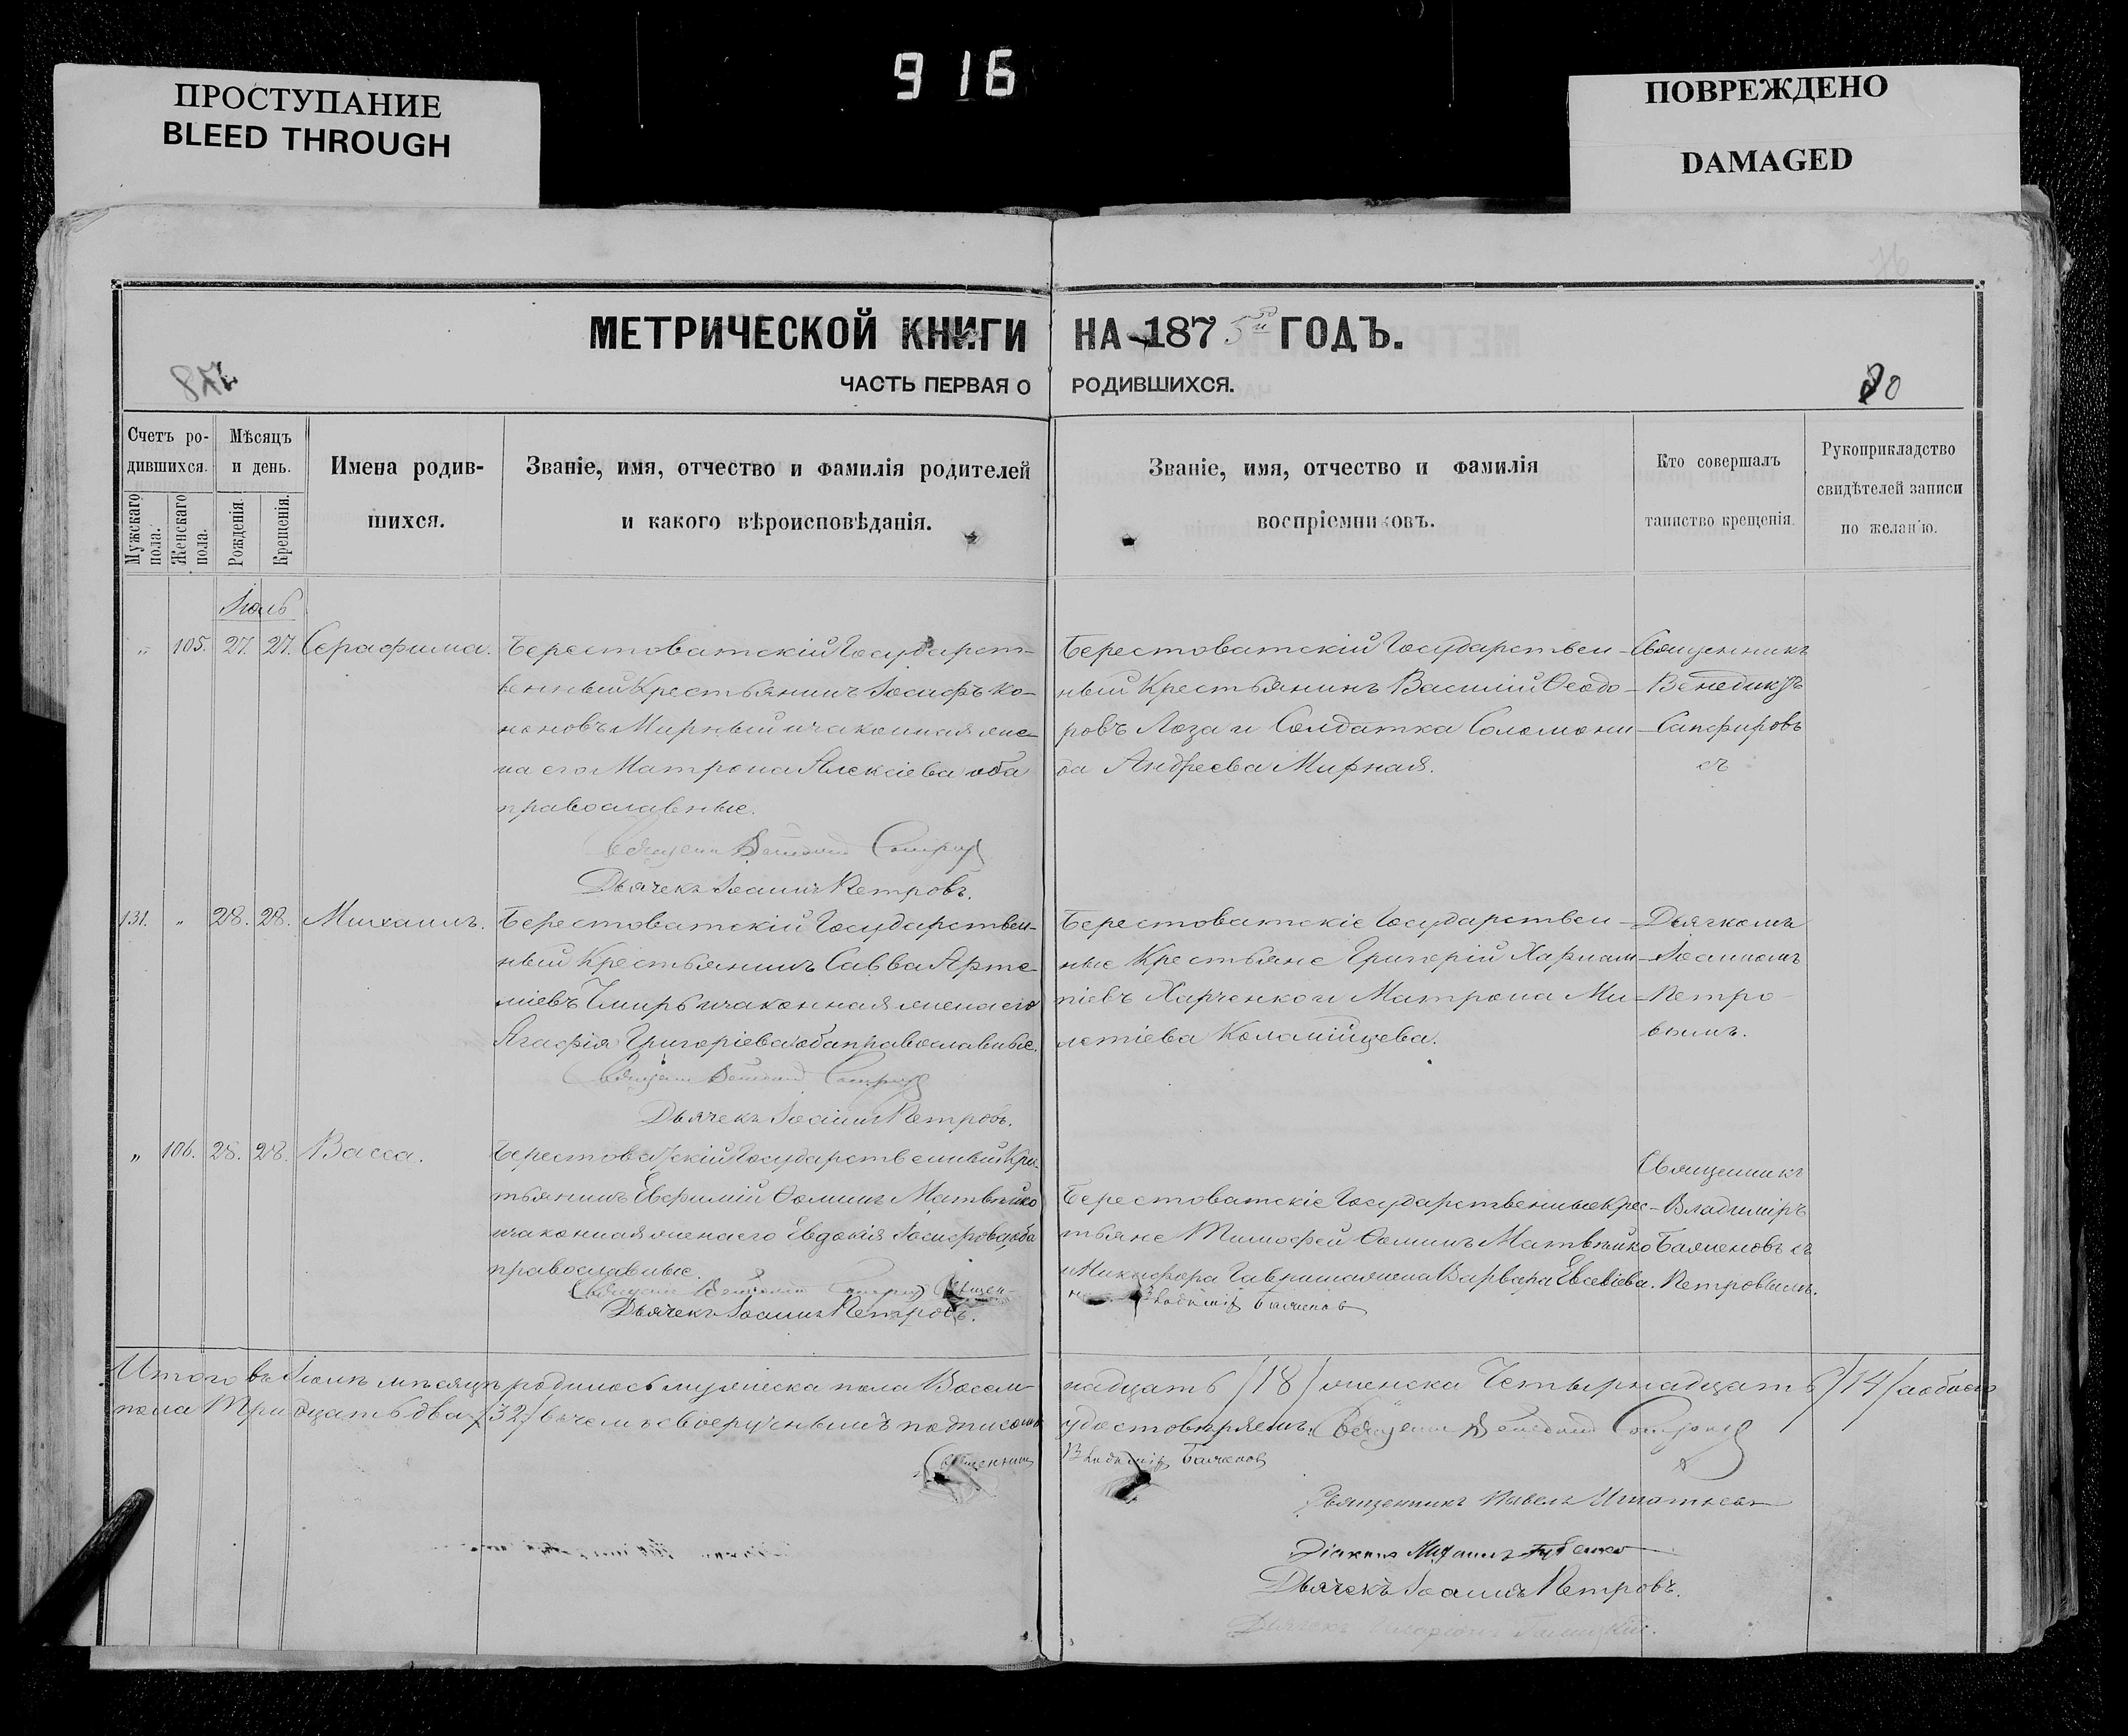 916
ПРОСТУПАНИЕ
BLEED THROUGH
ПОВРЕЖДЕНО
DAMAGED
МЕТРИЧЕСКОЙ КНИГИ НА 1875 ГОДЪ.
ЧАСТЬ ПЕРВАЯ О РОДИВШИХСЯ.
80
Счетъ ро-
дившихся.
Мужскаго пола.
Женскаго пола.
Мѣсяцъ
и день.
Рожденія.
Крещенія.
Имена родив-
шихся.
Званіе, имя, отчество и фамилія родителей
и какого вѣроисповѣданія.
Званіе, имя, отчество и фамилія
воспріемниковъ.
Кто совершалъ
таинство крещенія.
Рукоприкладство
свидѣтелей записи
по желанію.
Іюль
„ 105. 27. 27. Серафима.
Берестоватскій Государст-
венный Крестьянинъ Іосифъ Ко-
ноновъ Мирный и законная же-
на его Матрона Алексіева оба
православные.
Дьячекъ Іоаннъ Петровъ.
Берестоватскій Государствен-
ный Крестьянинъ Василій Ѳеодо-
ровъ Лоза и Солдатка Соломони-
да Андреева Мирная.
Священникъ
Венедиктъ
Сапфировъ
съ
131. „ 28. 28. Михаилъ.
Берестоватскій Государствен-
ный Крестьянинъ Савва Арте-
міевъ Чмиръ и законная жена его
Агафія Григоріева оба православные.
Дьячекъ Іоаннъ Петровъ.
Берестоватскіе Государствен-
ные Крестьяне Григорій Харлам-
піевъ Харченко и Матрона Ми-
летіева Коломійцева.
Дьячкомъ
Іоанномъ
Петро-
вымъ.
„ 106. 28. 28. Васса.
Берестоватскій Государственный Крес-
тьянинъ Евфимій Ѳоминъ Матвѣйко
и законная жена его Евдокія Іосифова оба
православные.
Дьячекъ Іоаннъ Петровъ.
Берестоватскіе Государственные Крес-
тьяне Тимофей Ѳоминъ Матвѣйко
и Никифора Гавриша жена Варвара Евсевіева.
Владиміръ Баженовъ
Священникъ
Владиміръ
Баженовъ съ
Петровымъ.
Итого въ Іюлѣ мѣсяцѣ родилось мужеска пола Восем-
надцать /18/ женска Четырнадцать /14/ а обоего
пола Тридцать два /32/ въ чемъ своеручнымъ подписомъ
удостовѣряемъ.
Священникъ
Владиміръ Баженовъ
Священникъ Павелъ Игнатьевъ
Діаконъ Михаилъ Губенко
Дьячекъ Іоаннъ Петровъ.